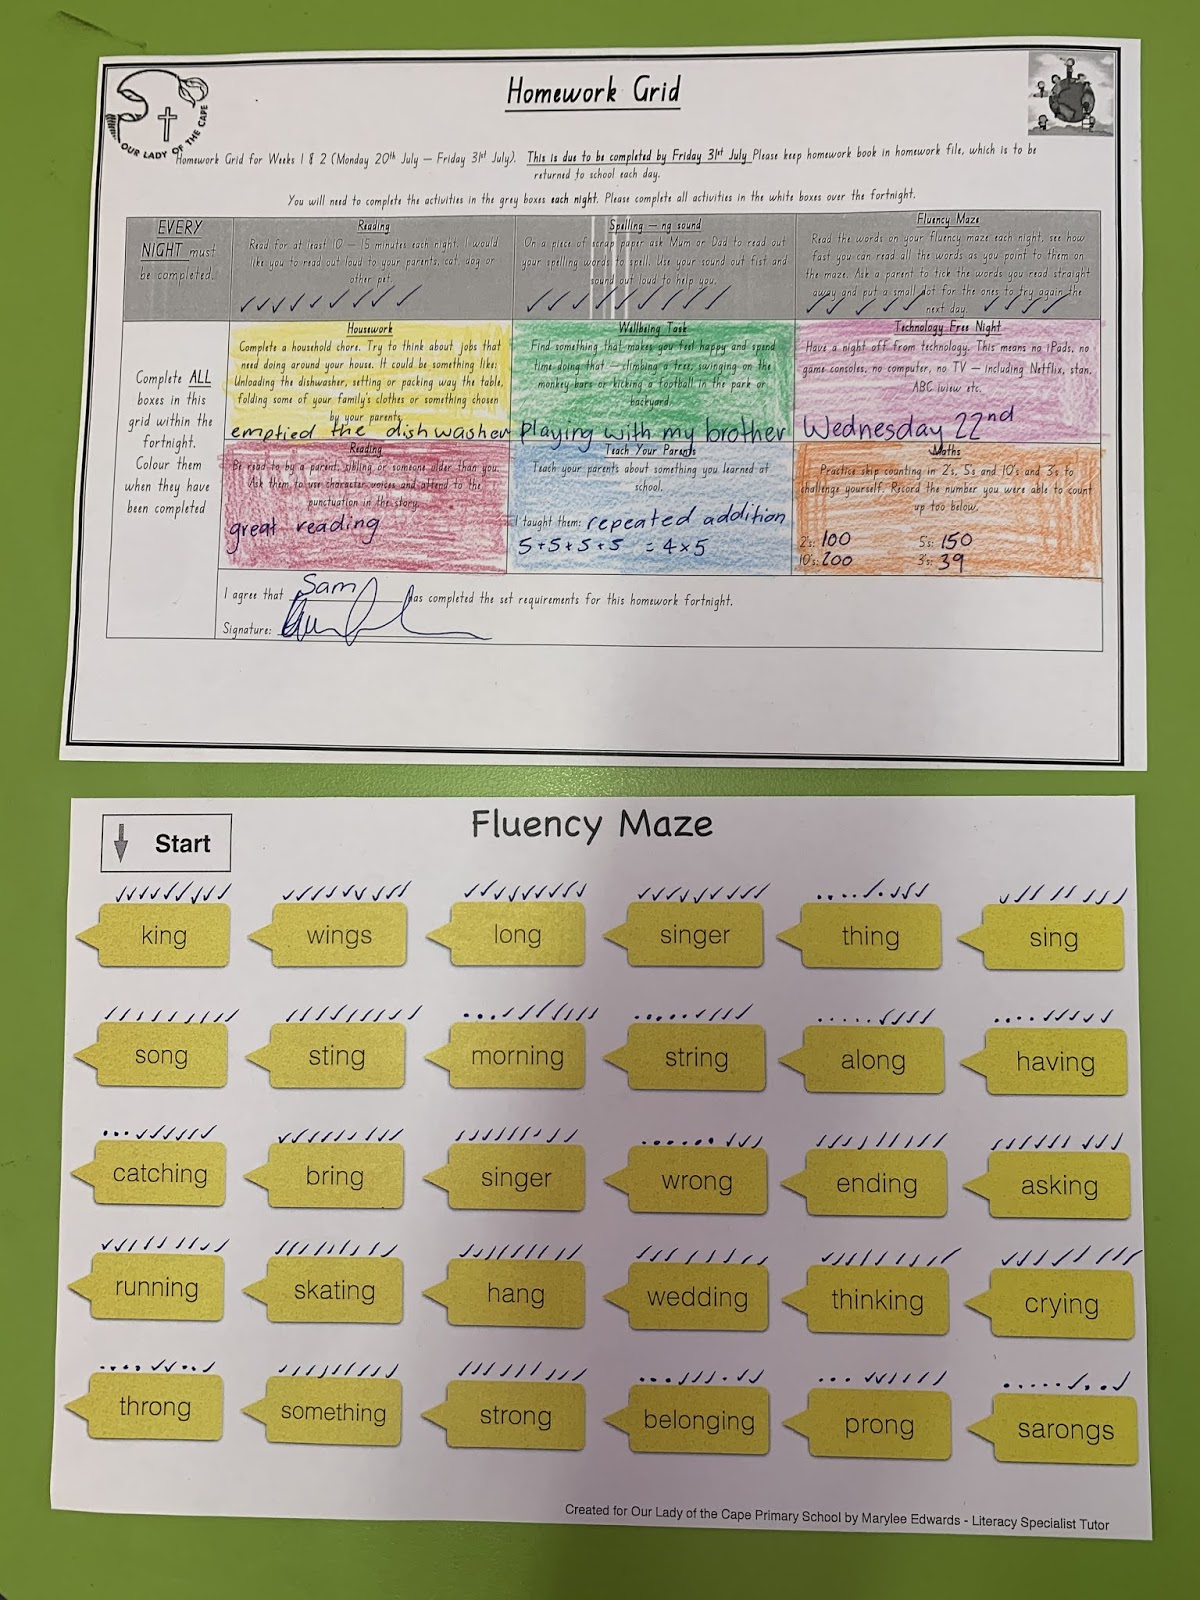 Homework Grid
OUR LADY OF THE CAPE
Homework Grid for Weeks 1 & 2 (Monday 20th July – Friday 31st July). This is due to be completed by Friday 31st July Please keep homework book in homework file, which is to be
returned to school each day.
You will need to complete the activities in the grey boxes each night. Please complete all activities in the white boxes over the fortnight.
EVERY
NIGHT must
be completed.
Reading
Read for at least 10 – 15 minutes each night. I would
like you to read out loud to your parents, cat, dog or
other pet.
Spelling – ng sound
On a piece of scrap paper ask Mum or Dad to read out
your spelling words to spell. Use your sound out fist and
sound out loud to help you.
Fluency Maze
Read the words on your fluency maze each night, see how
fast you can read all the words as you point to them on
the maze. Ask a parent to tick the words you read straight
away and put a small dot for the ones to try again the
next day.
Complete ALL
boxes in this
grid within the
fortnight.
Colour them
when they have
been completed
Housework
Complete a household chore. Try to think about jobs that
need doing around your house. It could be something like:
Unloading the dishwasher, setting or packing way the table,
folding some of your family's clothes or something chosen
by your parents.
emptied the dishwasher
Wellbeing Task
Find something that makes you feel happy and spend
time doing that – climbing a tree, swinging on the
monkey bars or kicking a football in the park or
backyard.
playing with my brother
Technology Free Night
Have a night off from technology. This means no iPads, no
game consoles, no computer, no TV – including Netflix, stan,
ABC iview etc.
Wednesday 22nd
Reading
Be read to by a parent, sibling or someone older than you.
Ask them to use character voices and attend to the
punctuation in the story.
great reading
Teach Your Parents
Teach your parents about something you learned at
school.
I taught them: repeated addition
5+5+5+5 = 4×5
Maths
Practice skip counting in 2's, 5s and 10's and 3's to
challenge yourself. Record the number you were able to count
up too below.
2's: 100 5's: 150
10's: 200 3's: 39
I agree that Sam has completed the set requirements for this homework fortnight.
Signature:
Start
Fluency Maze
king wings long singer thing sing
song sting morning string along having
catching bring singer wrong ending asking
running skating hang wedding thinking crying
throng something strong belonging prong sarongs
Created for Our Lady of the Cape Primary School by Marylee Edwards - Literacy Specialist Tutor